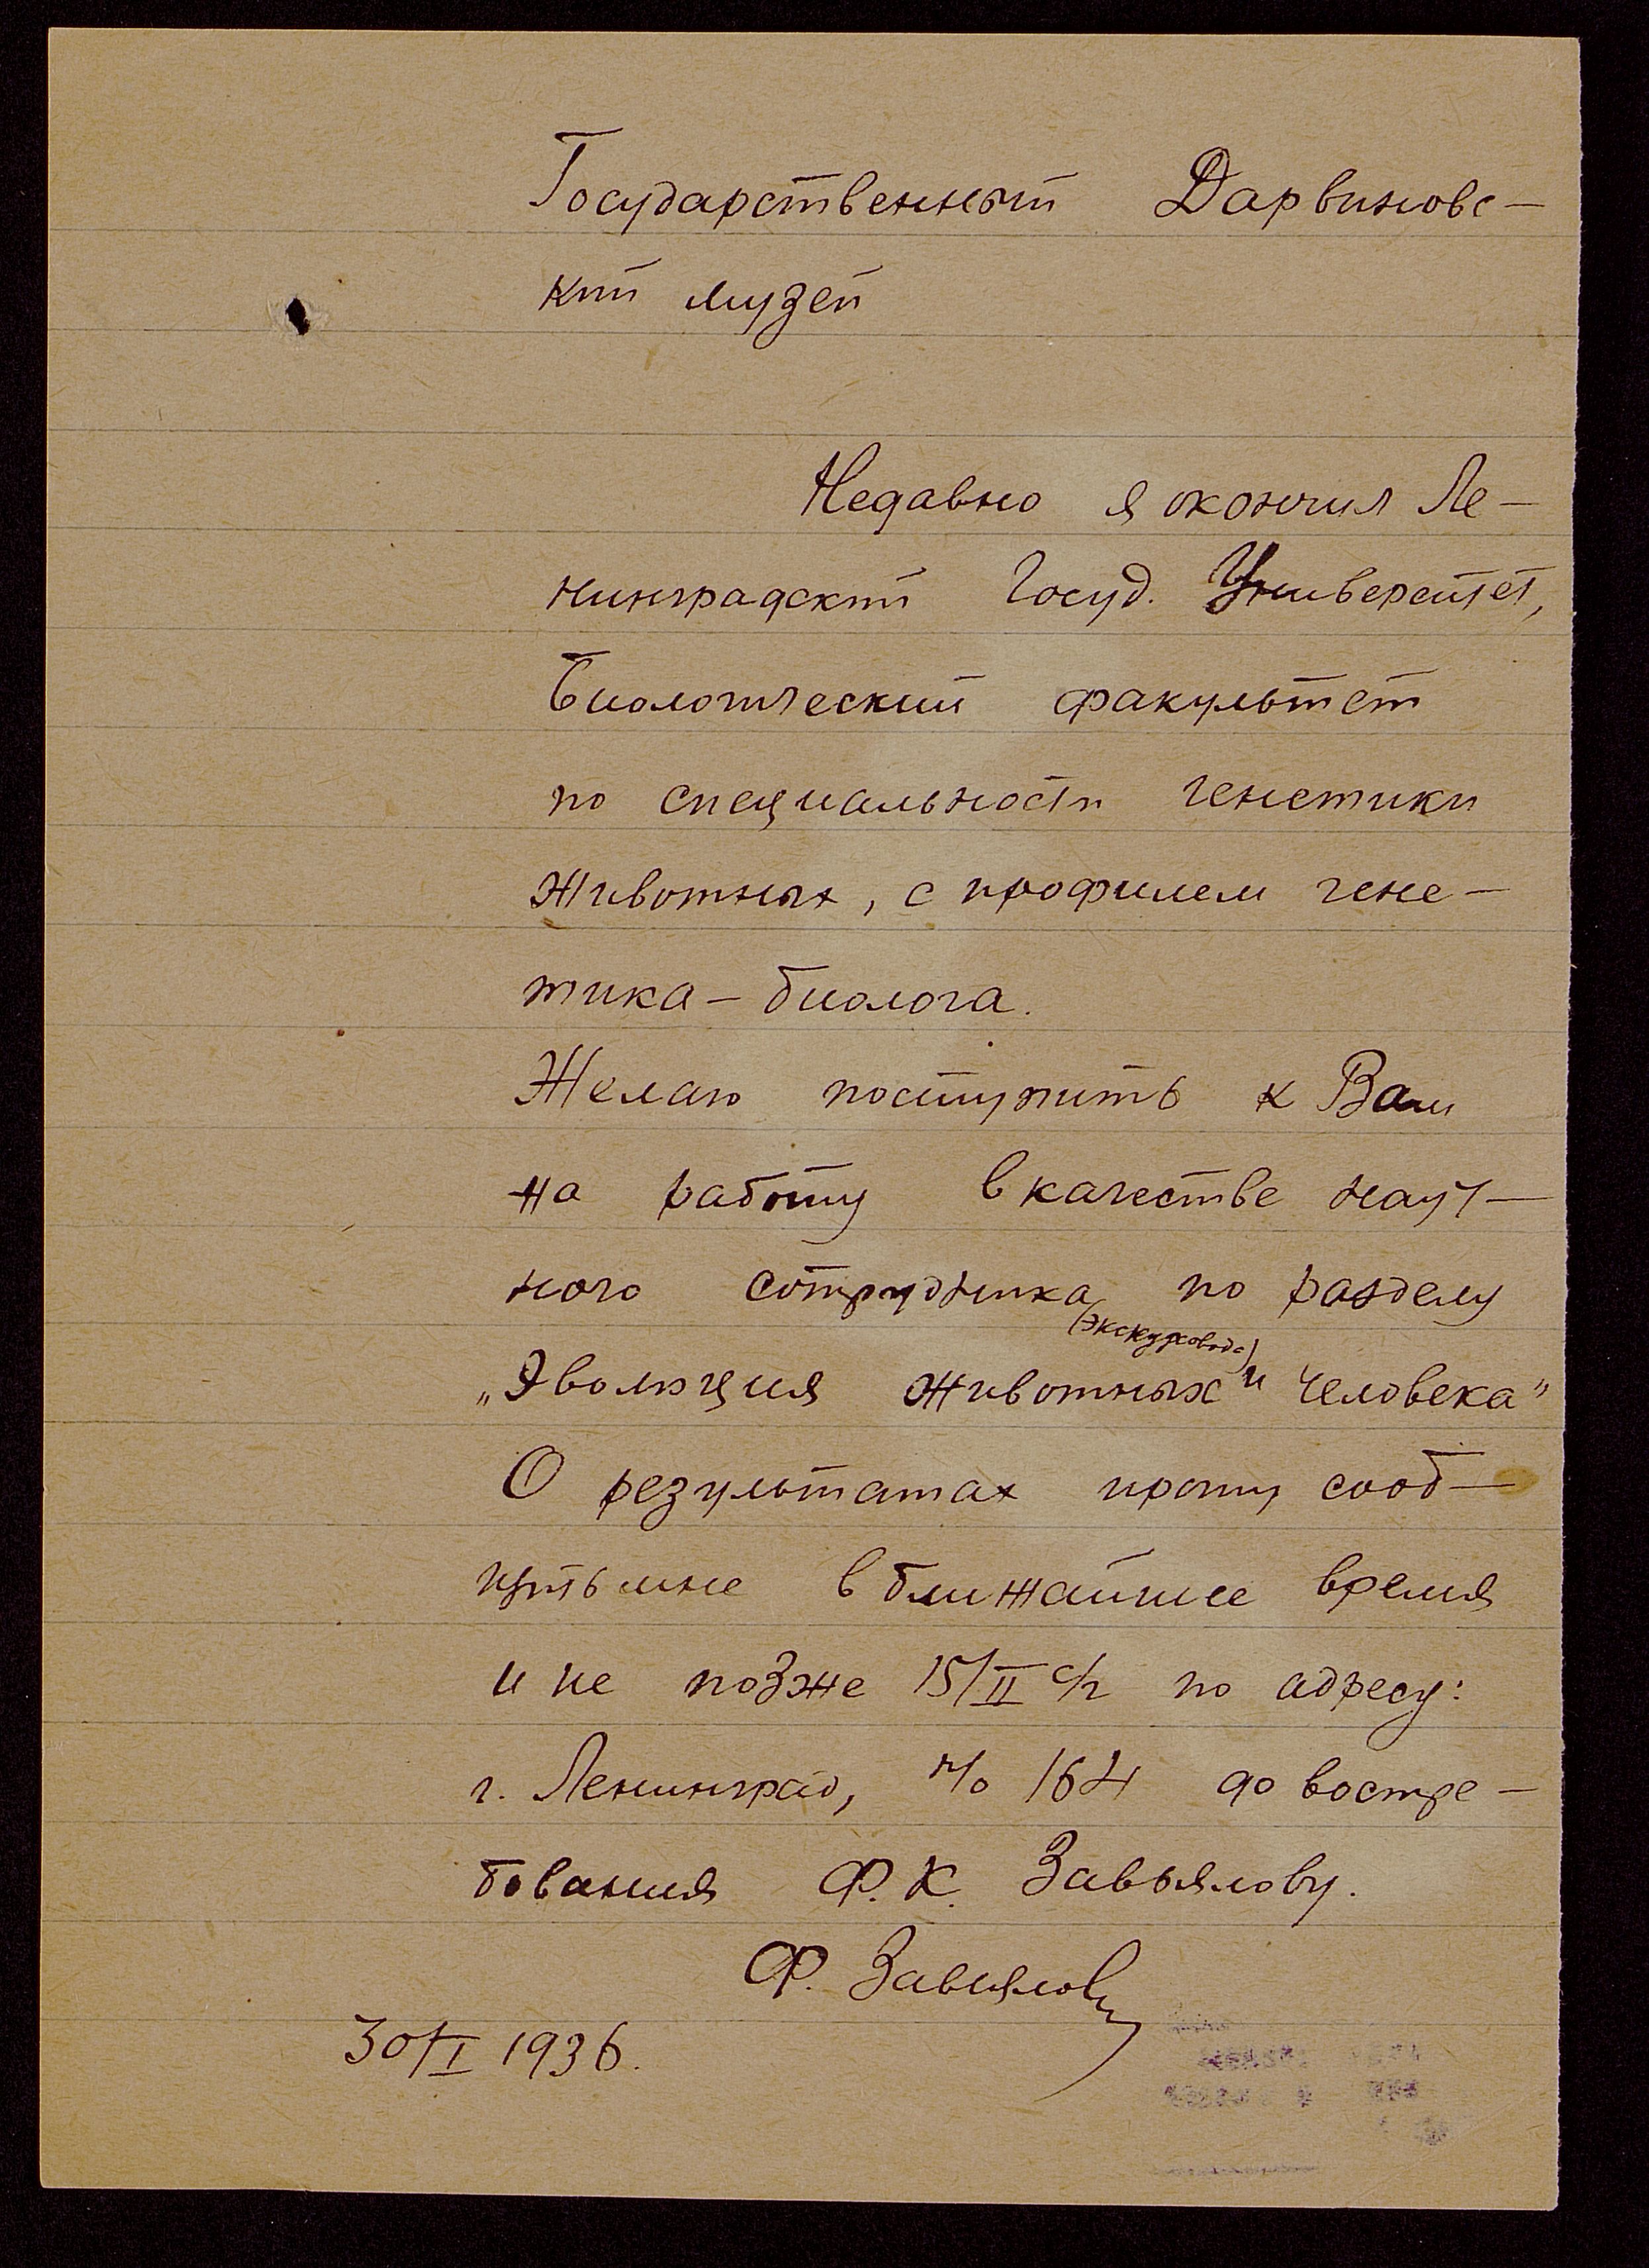 Государственный Дарвиновс-
кий музей
Недавно я окончил Ле-
нинградский Госуд. Университет,
Биологический факультет
по специальности генетики
животных, с профилем гене-
тика-биолога.
Желаю поступить к Вам
на работу в качестве науч-
ного сотрудника по разделу
(экскурсовода)
„Эволюция животных и человека"
О результатах прошу сооб-
щить мне в ближайшее время
и не позже 15/II с/г по адресу:
г. Ленинград, п/о 164 до востре-
бования Ф. К. Завьялову.
Ф. Завьялов
30/I 1936.